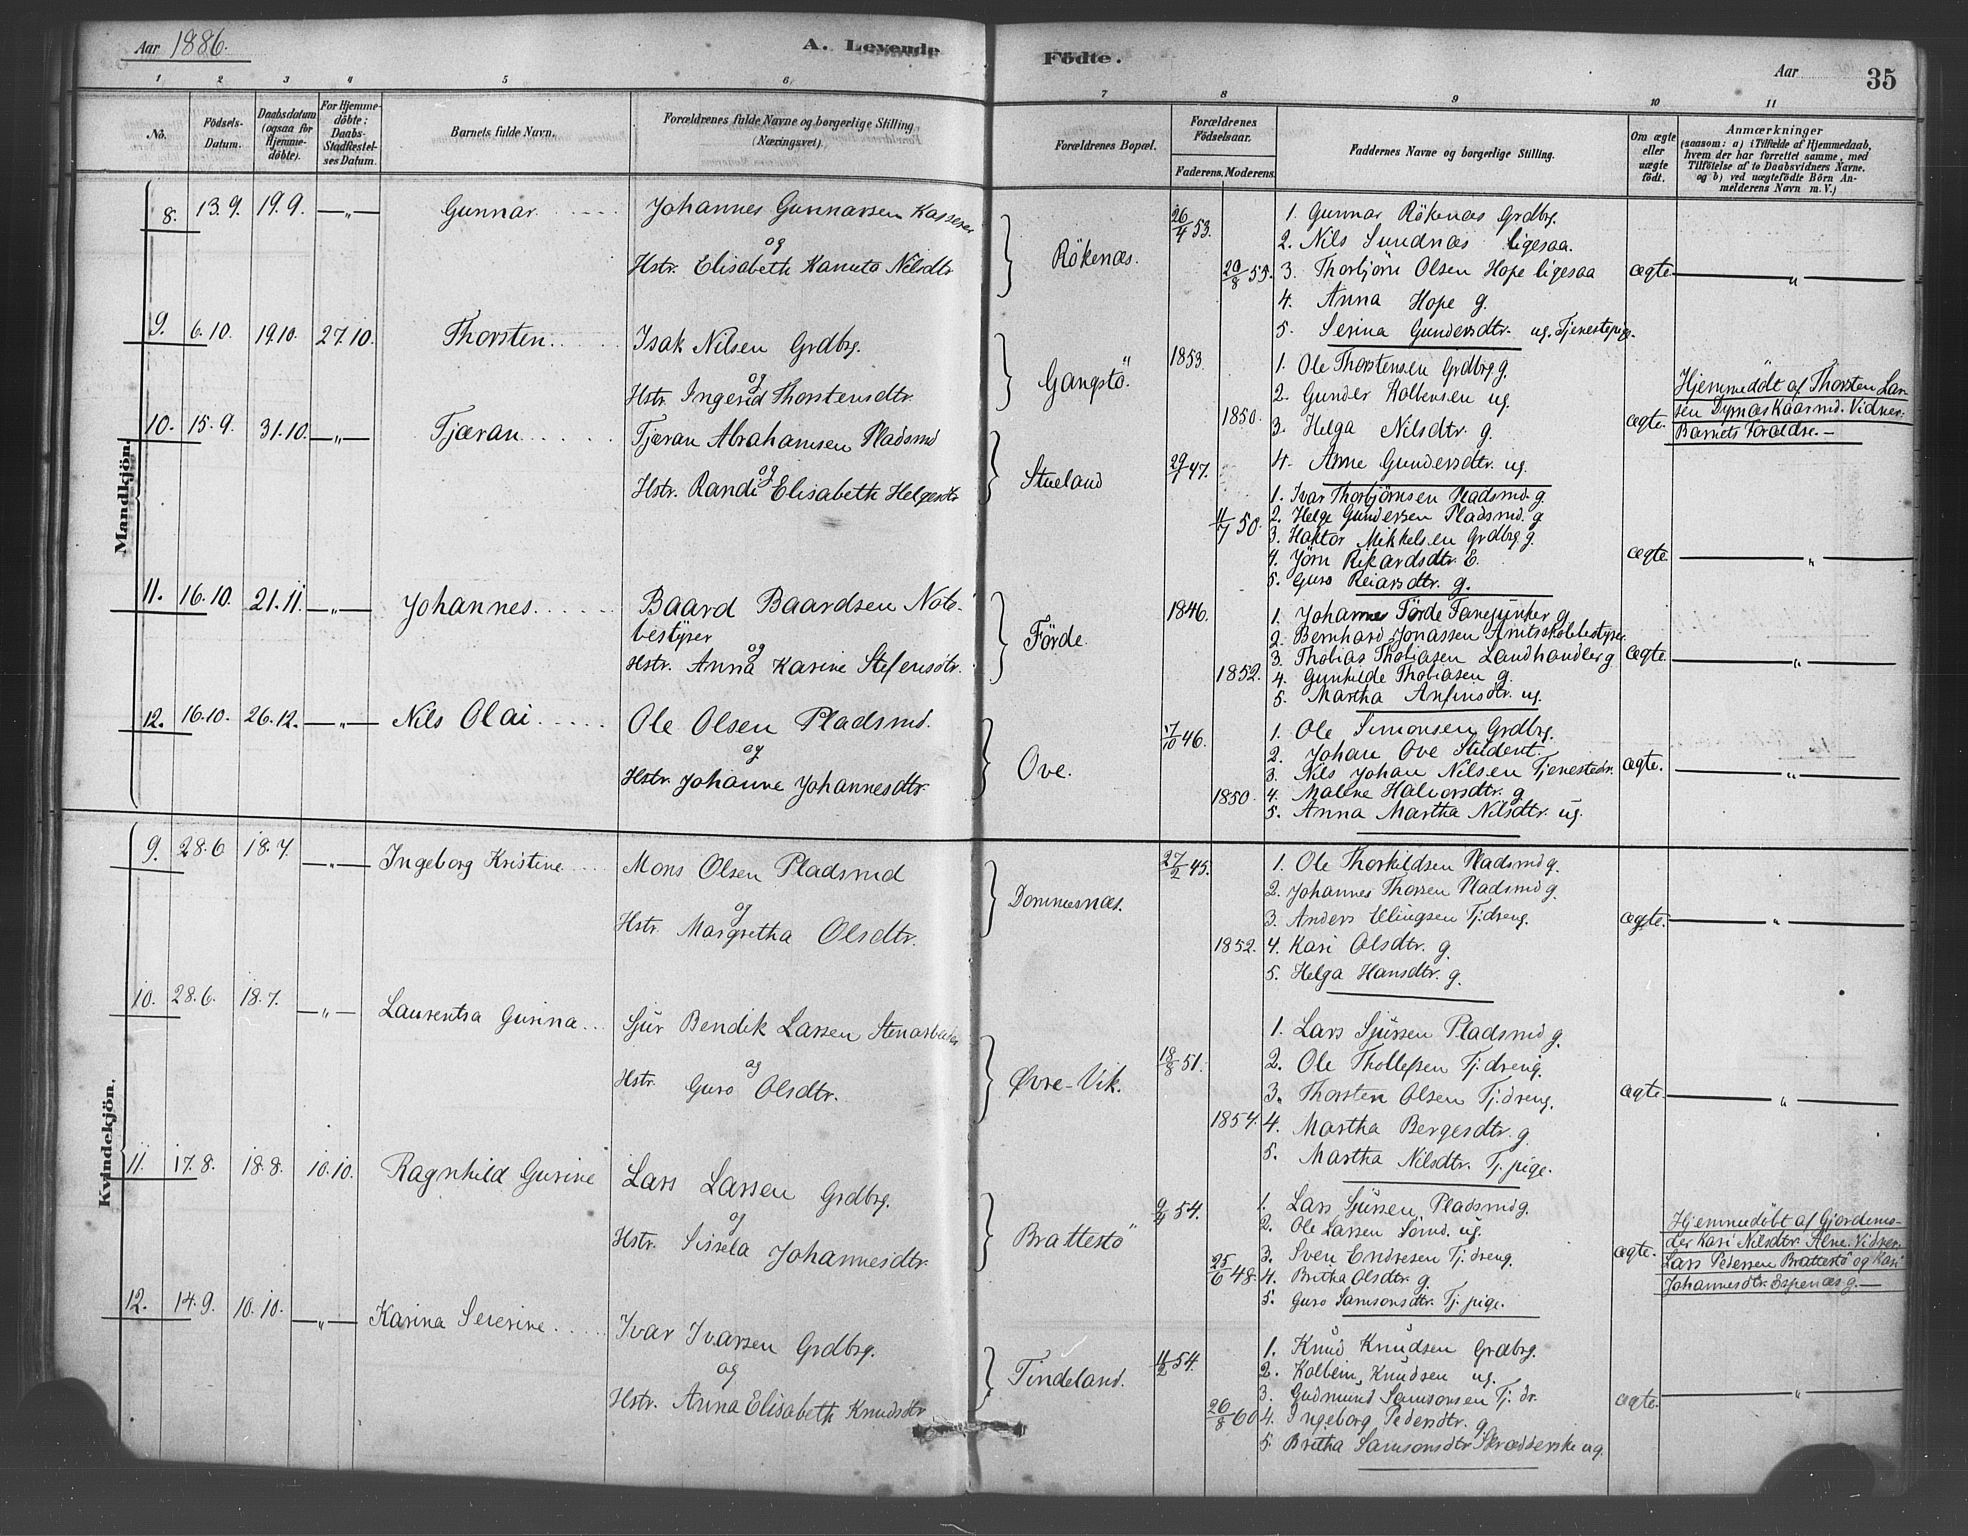 Aar 1886.
A. Levende Födte.
Aar 35
1 2 3 4 5 6 7 8 9 10 11
No.
Födsels-Datum.
Daabsdatum (ogsaa for Hjemme-döbte).
For Hjemme-döbte: Daabs-Stadfæstel-ses Datum.
Barnets fulde Navn.
Forældrenes fulde Navne og borgerlige Stilling (Næringsvei).
Forældrenes Bopæl.
Forældrenes Födselsaar.
Faderens. Moderens.
Faddernes Navne og borgerlige Stilling.
Om ægte eller uægte födt.
Anmærkninger
(saasom: a) i Tilfælde af Hjemmedaab, hvem der har forrettet samme, med Tilföielse af to Daabsvidners Navne, og b) ved uægtefödte Börn Anmelderens Navn m. V.)
Mandkjön.
8. 13.9. 19.9. —„— Gunnar
Johannes Gunnarsen Kasserer
og
Hstr. Elisabeth Kanuta Nilsdtr
Rökenæs.
26/4 53.
20/8 55.
1. Gunnar Rökenæs Grdbrg.
2. Nils Sundnæs ligesaa.
3. Thorbjörn Olsen Hope ligesaa
4. Anna Hope g.
5. Serina Gundersdtr. ug. Tjenestepige.
ægte —„—
9. 6.10. 19.10. 27.10. Thorsten
Isak Nilsen Grdbrg.
og
Hstr. Ingerid Thorstensdtr.
Gangstö.
1853.
1850.
1. Ole Thorstensen Grdbrg g.
2. Gunder Kolbensen ug.
3. Helga Nilsdtr. g.
4. Anne Gundersdtr. ug.
ægte.
Hjemmedöbt af Thorsten Lar-
sen Dymæs Kaarmd. Vidner:
Barnets Foreldre.—
10. 15.9. 31.10. —„— Tjæran
Tjæran Abrahamsen Pladsmd
og
Hstr. Randi Elisabeth Helgesdtr
Stueland
29/7 47.
11/7 50.
1. Ivar Thorbjörnsen Pladsmd. g.
2. Helge Gundersen Pladsmd. g
3. Haktor Mikkelsen Grdbrg. g.
4. Jörn Rikardsdtr. E.
5. Guro Reiarsdtr. g.
ægte —„—
11. 16.10. 21.11. —„— Johannes.
Baard Baardsen Noto-
bestyrer
og
Hstr. Anna Karine Stefensdtr.
Förde
1846.
1852.
1. Johannes Förde Fanejunker g
2. Bernhard Jonassen Amtsskolebestyrer
3. Thobias Thobiasen Landhandler g
4. Gunhilde Thobiasen g.
5. Martha Anfinsdtr. ug.
ægte. —„—
12. 16.10. 26.12. —„— Nils Olai
Ole Olsen Pladsmd.
og
Hstr. Johanne Johannesdtr.
Ove.
17/10 46.
1850.
1. Ole Simonsen Grdbrg.
2. Johan Ove Student.
3. Nils Johan Nilsen Tjenestedr.
4. Malene Halvorsdtr. g
5. Anna Martha Nilsdtr. ug.
ægte. —„—
Kvindekjön.
9. 28.6 18.7. —„— Ingeborg Kristine
Mons Olsen Pladsmd
og
Hstr. Margretha Olsdtr.
Dommesnæs.
27/2 45.
1852.
1. Ole Thorkildsen Pladsmd g.
2. Johannes Thorsen Pladsmd g.
3. Anders Ellingsen Tj. dreng.
4. Kari Olsdtr. g.
5. Helga Hansdtr. g.
ægte. —„—
10. 28.6. 18.7. —„— Laurentsa Gurina
Sjur Bendik Larsen Stenarbeider
og
Hstr. Guro Olsdtr.
Øvre-Vik.
18/8 51.
1854.
1. Lars Sjursen Pladsmd g.
2. Ole Thollefsen Tj. dreng.
3. Thorsten Olsen Tj. dreng.
4. Martha Bergesdtr. g
5. Martha Nilsdtr. Tj. pige.
ægte. —„—
11. 17.8. 18.8. 10.10. Ragnhild Gurine
Lars Larsen Grdbrg.
og
Hstr. Sissela Johannesdtr.
Brattestö
9/4 54.
25/6 48.
1. Lars Sjursen Pladsmd g.
2. Ole Larsen Sömd. ug.
3. Sven Endresen Tj. dreng.
4. Britha Olsdtr. g
5. Guro Samsonsdtr. Tj. pige.
ægte.
Hjemmedöbt af Gjordemo-
der Kari Nilsdtr. Alne. Vidner:
Lars Pedersen Brattestö og Kari
Johannesdtr. Espenæs g.—
12. 14.9. 10.10. —„— Karina Severine
Ivar Ivarsen Grdbrg.
og
Hstr. Anna Elisabeth Knudsdtr
Tindeland.
11/2 54.
26/8 60
1. Knud Knudsen Grdbrg.
2. Kolbein Knudsen ug.
3. Gudmund Samsonsen Tj. dr.
4. Ingeborg Pedersdtr. g.
5. Britha Samsonsdtr. Skrædderske ug.
ægte. —„—